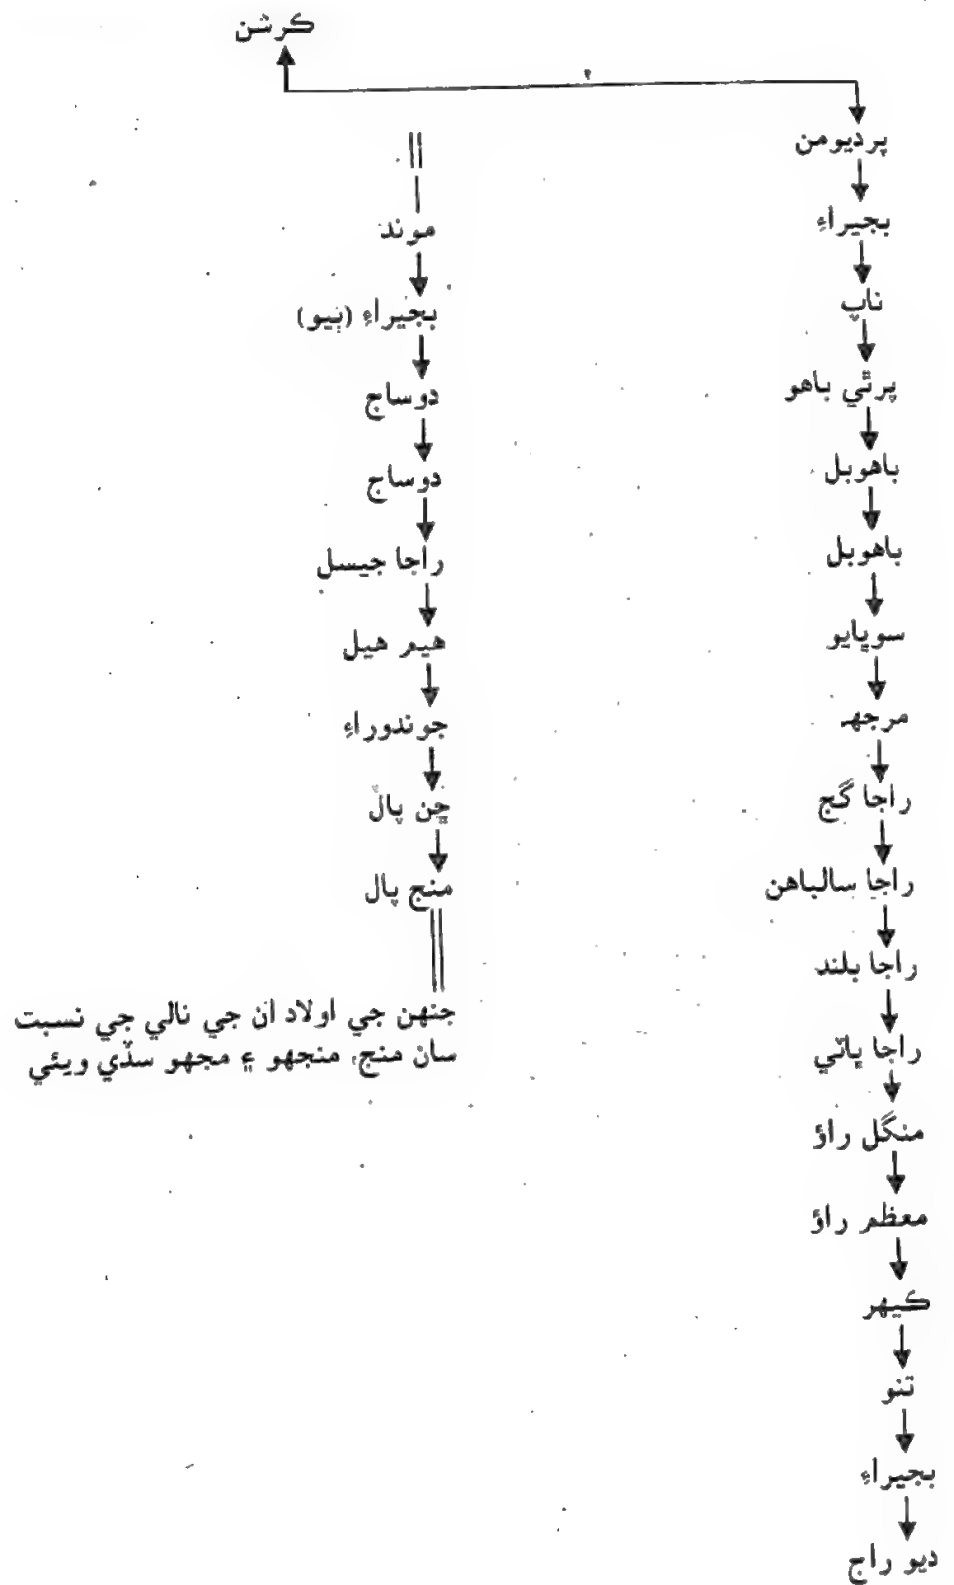 ڪرشن
۲
پرديومن
بجيراءِ
ناڀ
پرٿي باهو
باهوبل
باهوبل
سوڀايو
مرجهہ
راجا گج
راجا سالباهن
راجا بلند
راجا ڀاٽي
منگل راؤ
معظم راؤ
ڪيهر
تنو
بجيراءِ
ديو راج
موند
بجيراءِ (ٻيو)
دوساج
دوساج
راجا جيسل
هيم هيل
جوندوراءِ
پال
منج پال
جنهن جي اولاد ان جي نالي جي نسبت
سان منج، منجهو ۽ مجهو سڏي ويئي